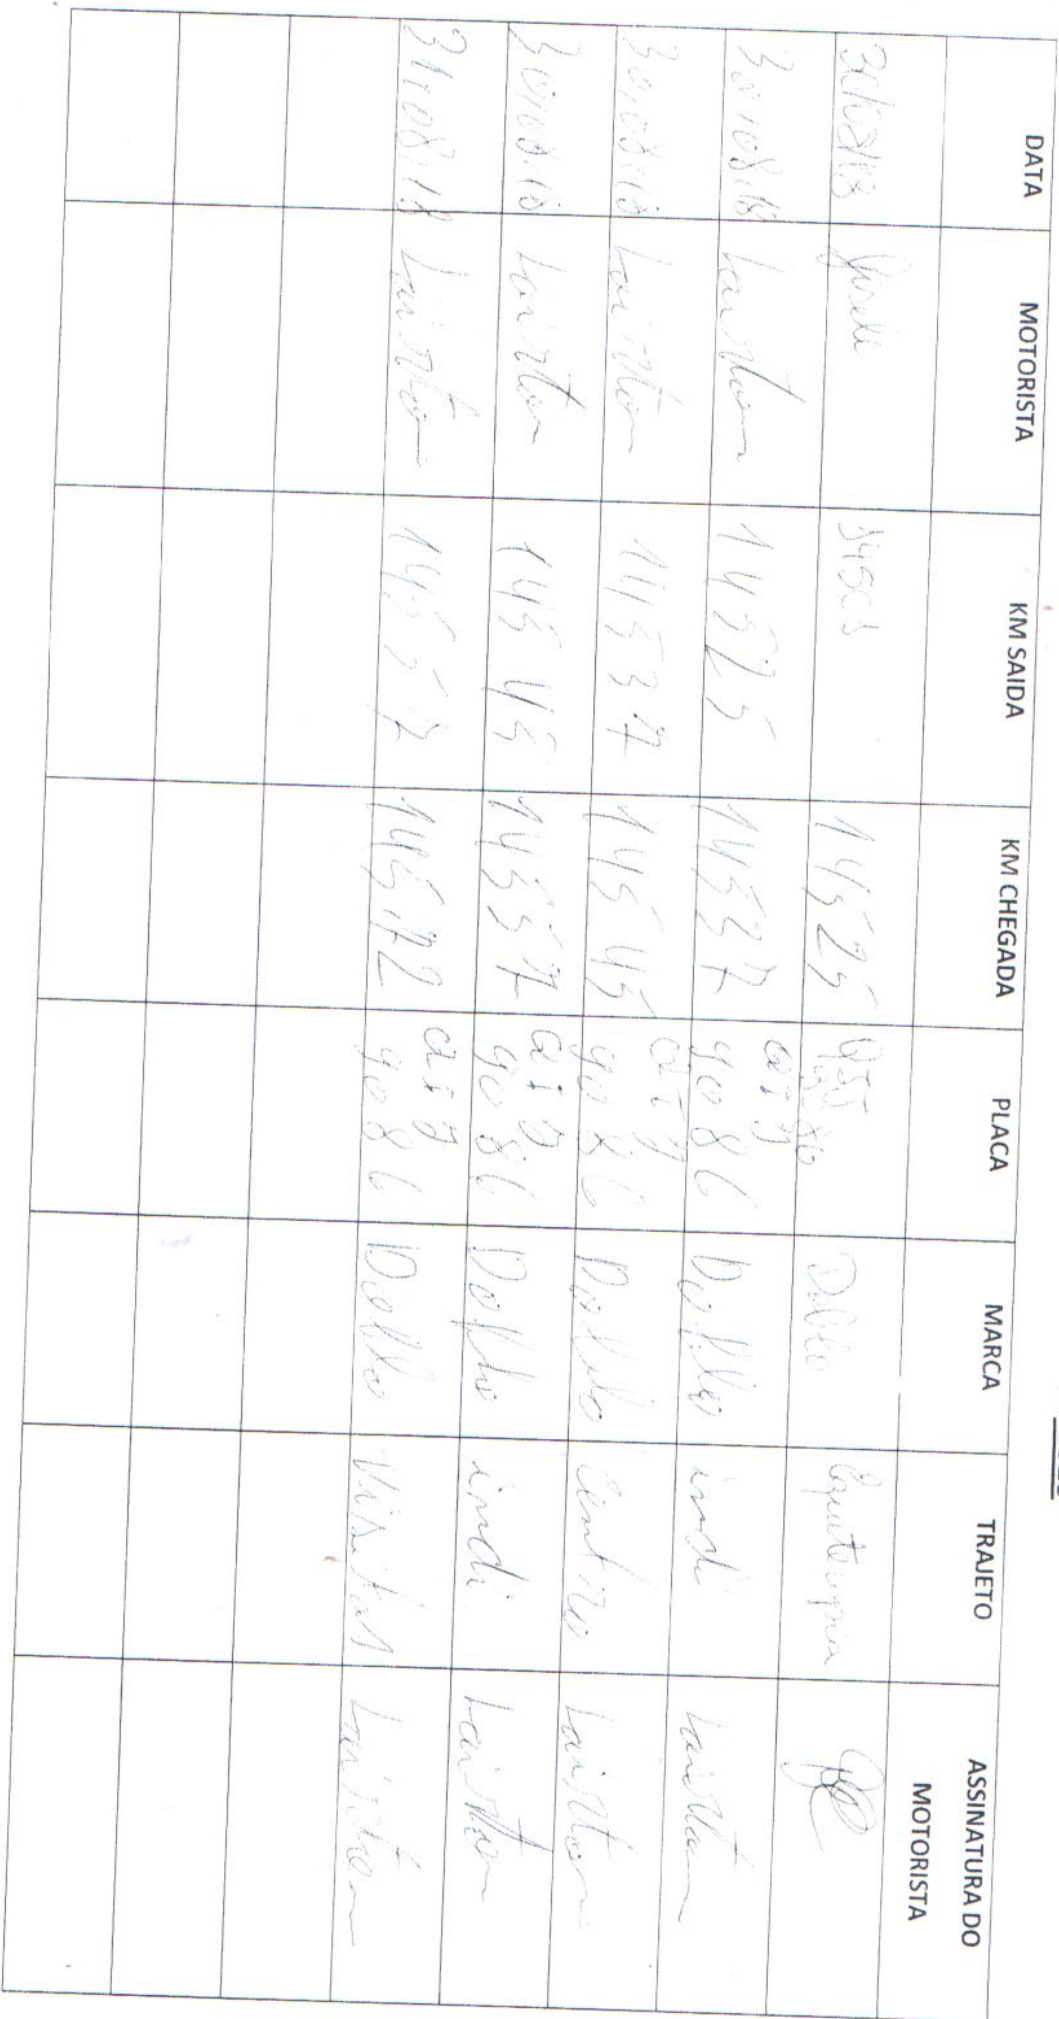 DATA MOTORISTA KM SAIDA KM CHEGADA PLACA MARCA TRAJETO ASSINATURA DO MOTORISTA
Gisele 14525 Doblo
30/08/18 Lairton 14525 14537 QIJ 9086 Doblo indi Lairton
30/08/18 Lairton 14537 14545 QIJ 9086 Doblo Centro Lairton
30/08/18 Lairton 14545 14557 QIJ 9086 Doblo indi Lairton
31/08/18 Lairton 14557 14572 QIJ 9086 Doblo Visitas Lairton